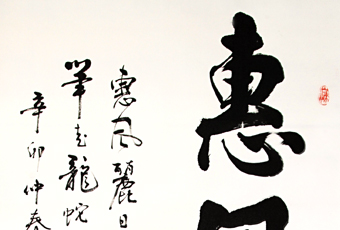 惠風
惠风麗日
筆走龍蛇
辛卯仲春